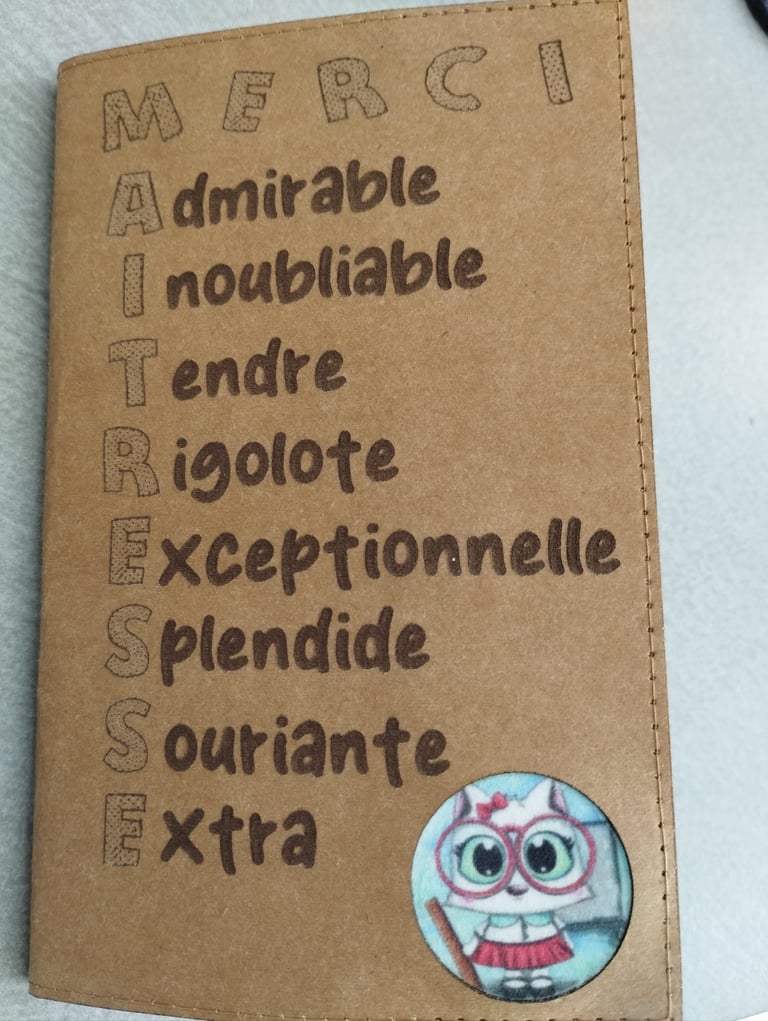 MERCI
Admirable
Inoubliable
Tendre
Rigolote
Exceptionnelle
Splendide
Souriante
Extra